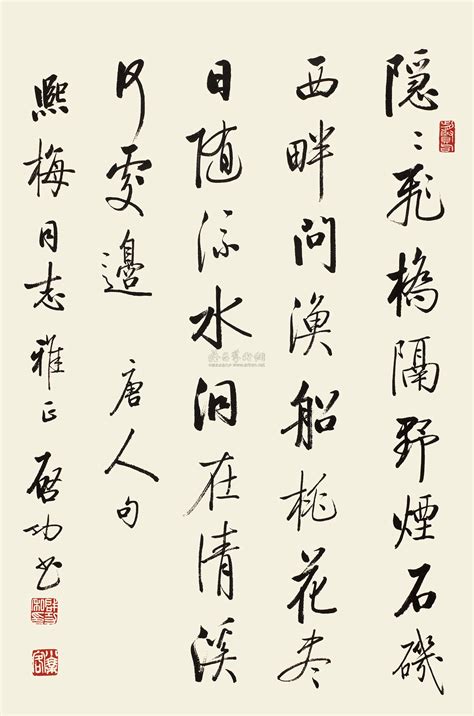 隐〻飛橋隔野煙石磯
西畔问渔船桃花尽
日随流水洞在清溪
何處邊 唐人句
熙梅同志雅正 启功书